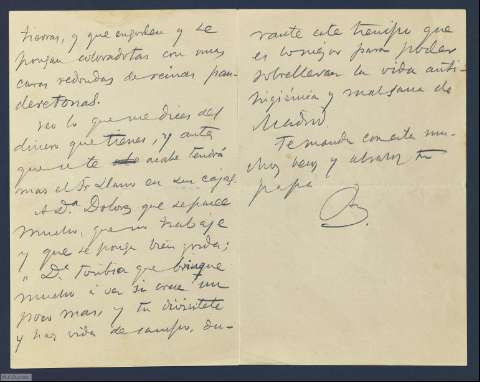 tierras, y que engorden y se
pongan coloradotas con unas
caras redondas de reinas pan-
deretonas.
Veo lo que me dices del
dinero que tienes, y antes
que se te acabe tendrá
mas el Sr Llanos en su caja.
A Dª Dolores que se pasee
mucho, que no trabaje
y que se ponga bien gorda;
a Dª Toribia que brinque
mucho á ver si crece un
poco mas, y tu diviértete
y haz vida de campo, du-
rante este tiempo que
es lo mejor para poder
sobrellevar la vida anti-
higiénica y malsana de
Madrid.
Te manda con esta mu-
chos besos y abrazos tu
papa